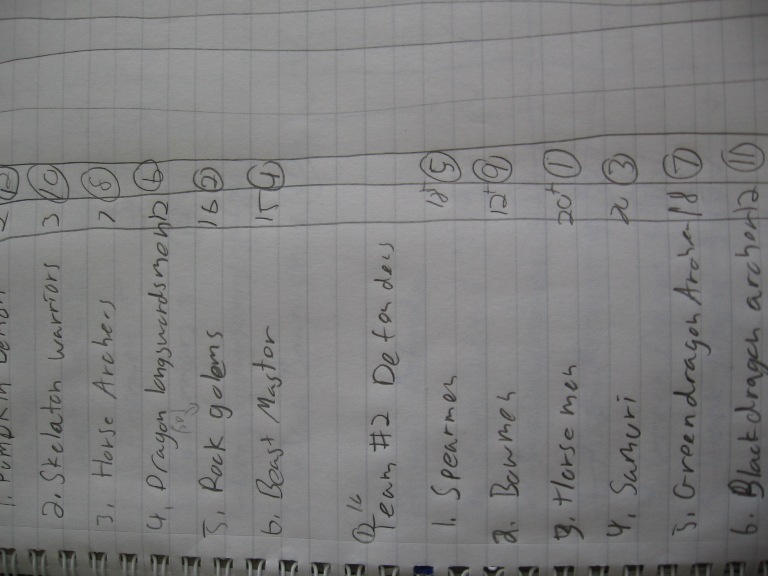 1. Pumpkin Demon 2
2. Skelaton warriors 3 10
3. Horse Archers 7 8
4. Dragon longswordsmen 12 6
5. Rock golems 16 2
6. Beast Mastor 15 4
Team #2 Defenders
1. Spearmen 18+ 5
2. Bowmen 12+ 9
3. Horsemen 20+ 1
4. Samuri 20 3
5. Greendragon Archer 18 7
6. Blackdragon archer 12 11